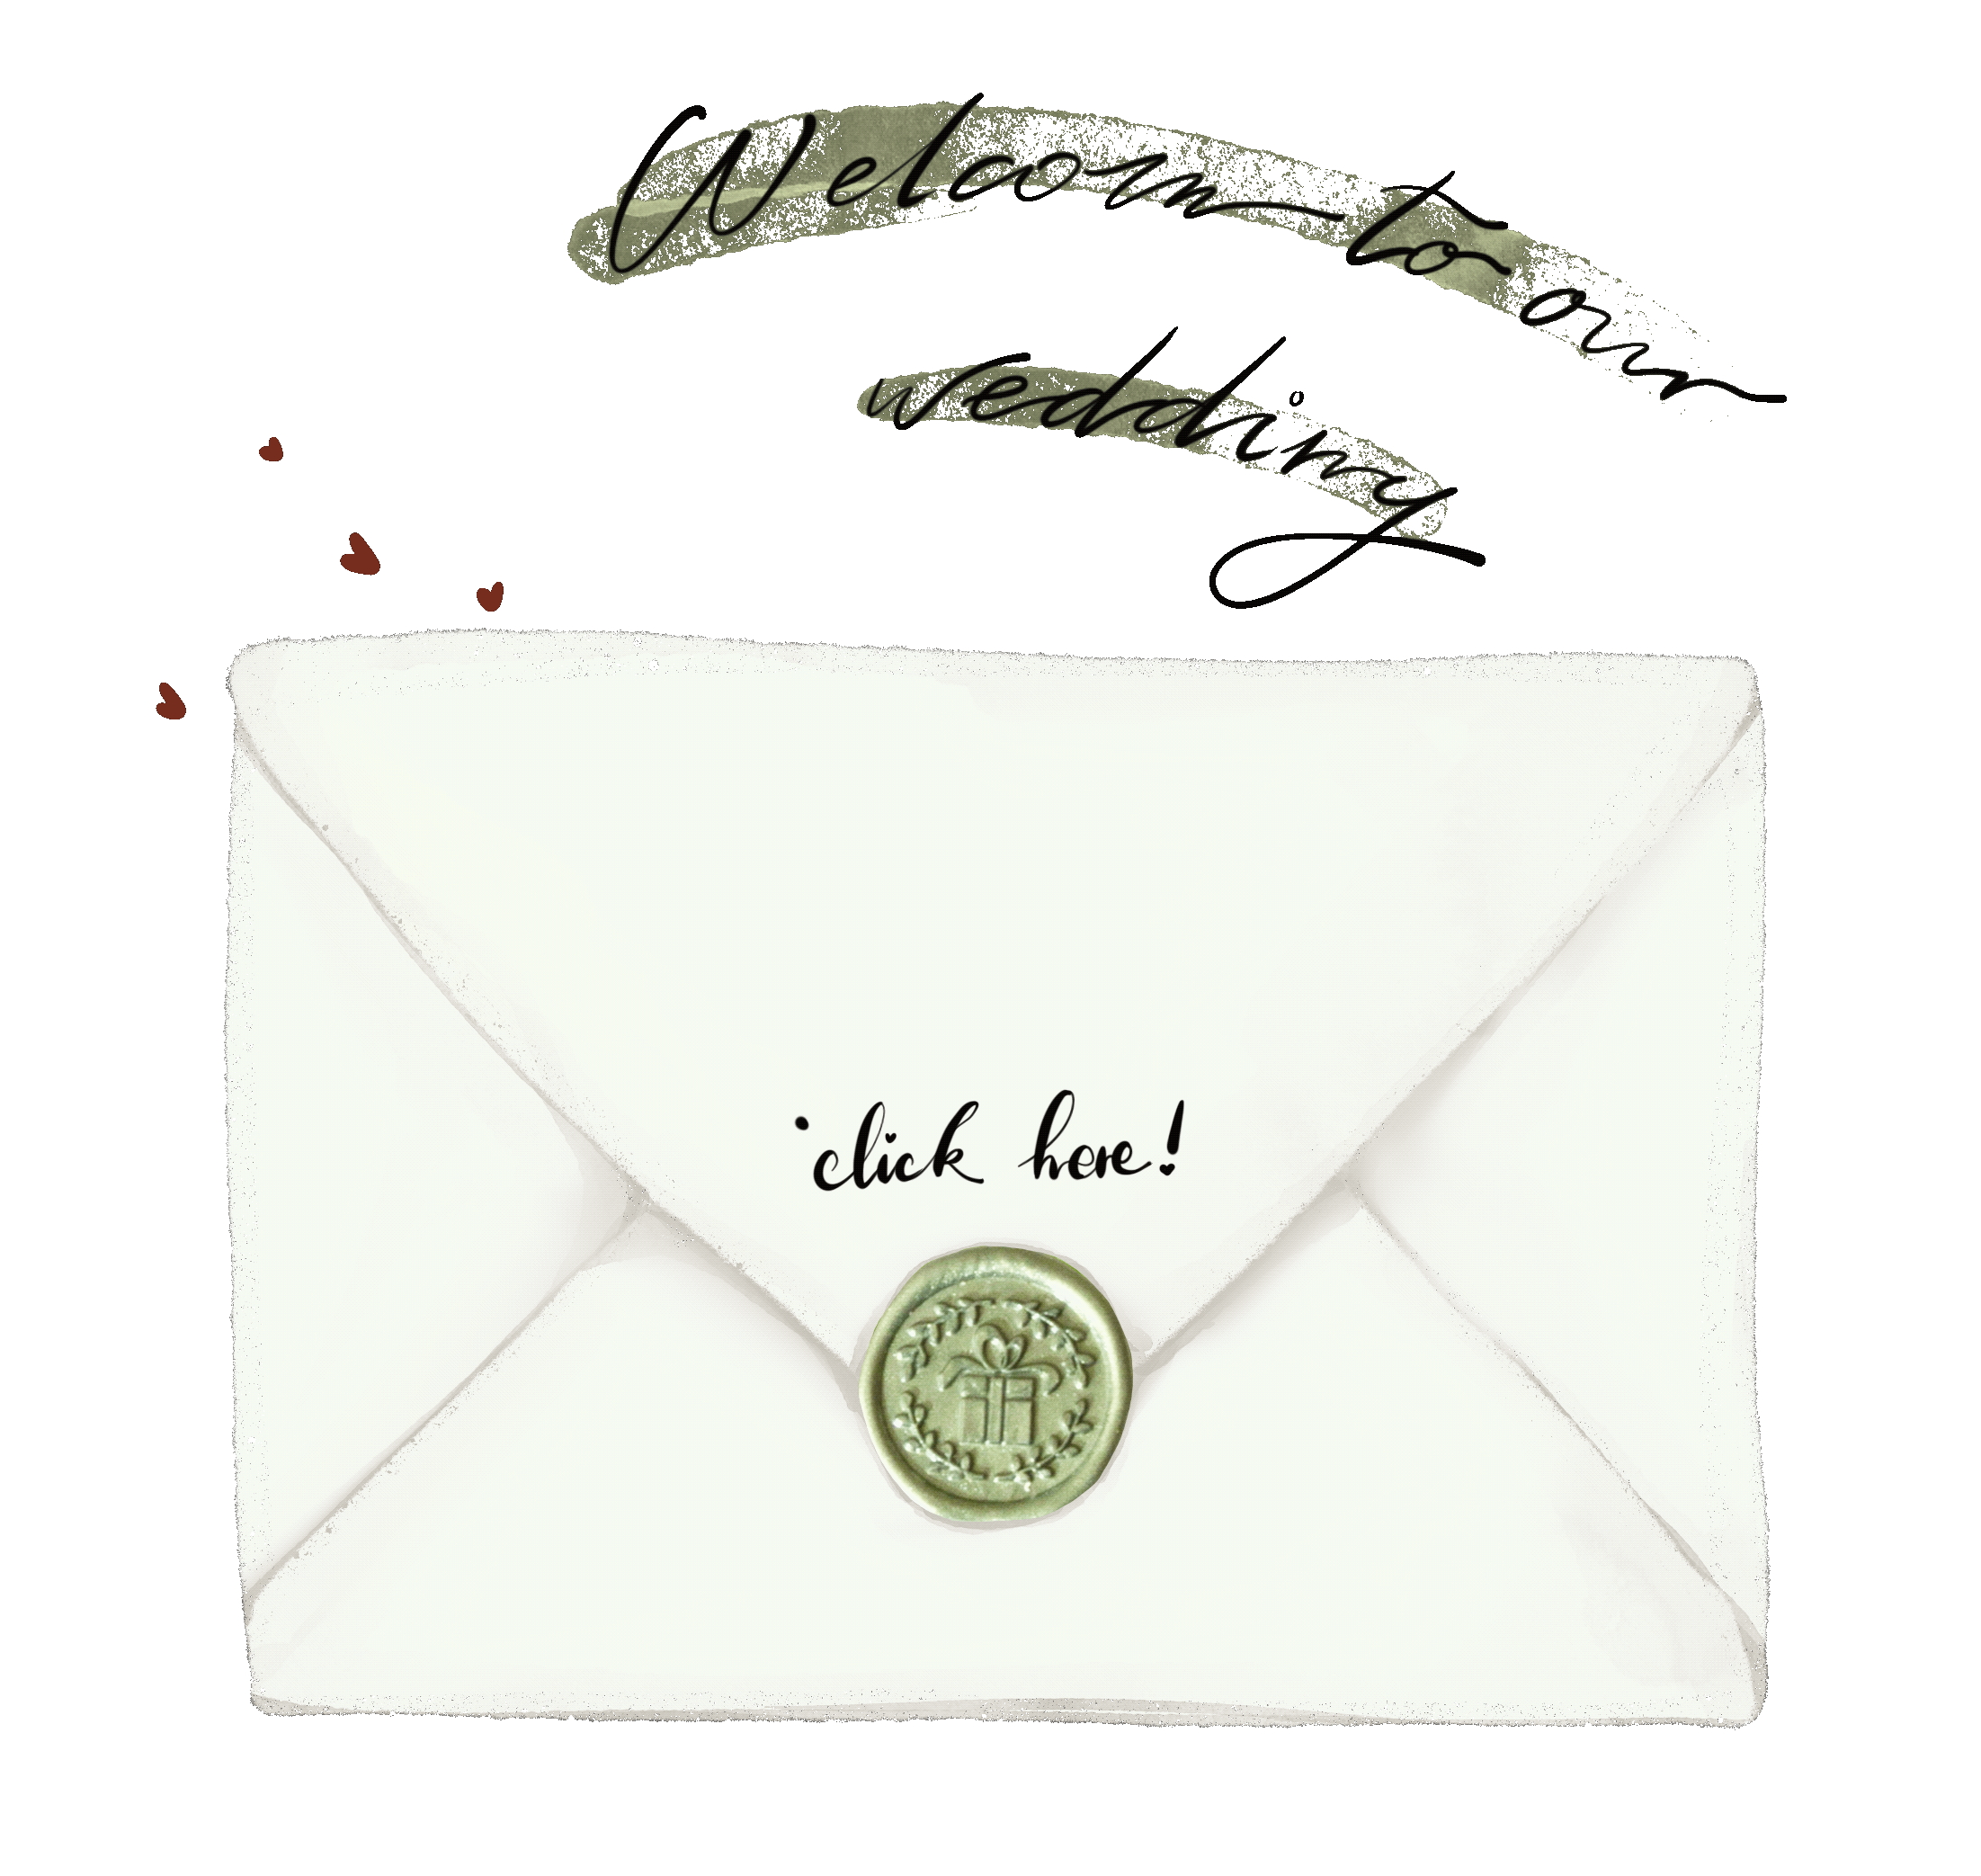 Welcom to our
wedding
click here!